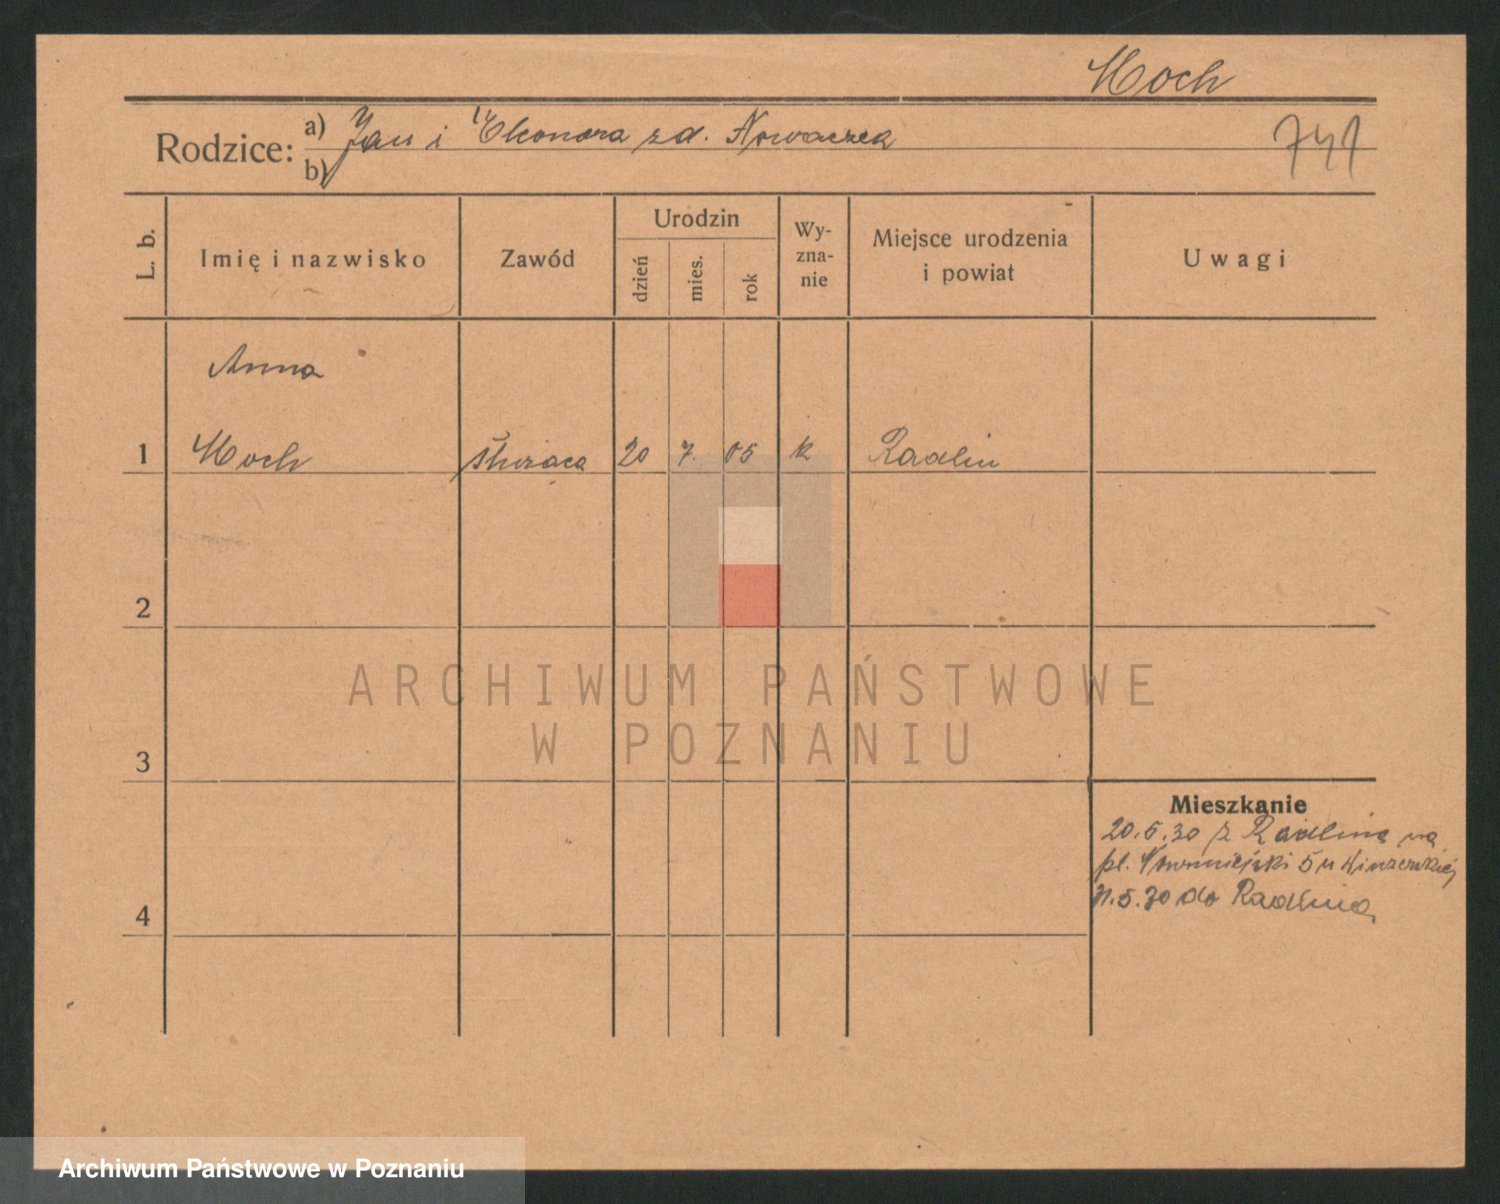 Moch
Rodzice: a) Jan i Eleonora zd. Nowaczek
b)
741
L. b.
Imię i nazwisko
Zawód
Urodzin
dzień
mies.
rok
Wy-
zna-
nie
Miejsce urodzenia
i powiat
Uwagi
Anna
1 Moch służąca 20 7. 05 k Radlin
2
3
4
Mieszkanie
20.5.30 z Radlina na
pl. Nowomiejski 5 u
31.5.30 do Radlina
ARCHIWUM PAŃSTWOWE
W POZNANIU
Archiwum Państwowe w Poznaniu